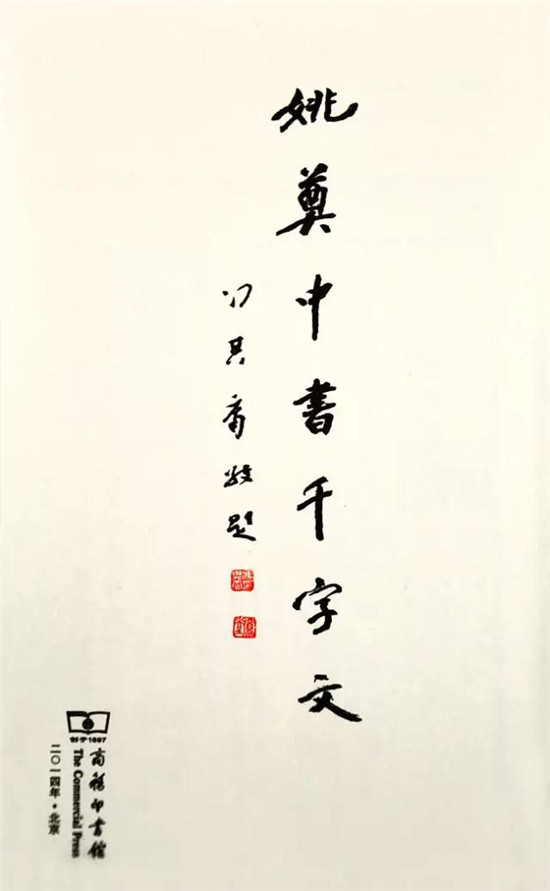 姚奠中书千字文
冯其庸敬题
创于1897
商务印书馆
The Commercial Press
二〇一四年·北京